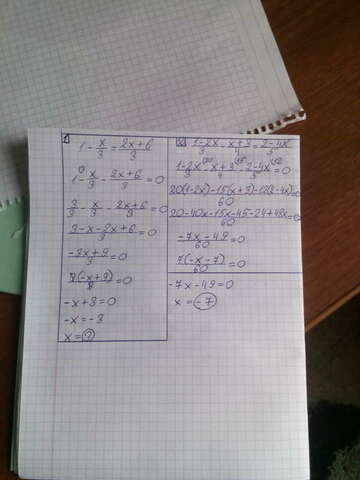 1
1 - x/3 = (2x+6)/3
1 - x/3 - (2x+6)/3 = 0
3/3 - x/3 - (2x+6)/3 = 0
(3-x-2x+6)/3 = 0
(-3x+9)/3 = 0
3(-x+3)/3 = 0
-x+3=0
-x=-3
x=3
(1-2x)/3 - (x+3)/4 = (2-4x)/5
(1-2x)/3 - (x+3)/4 - (2-4x)/5 = 0
(20(1-2x)-15(x+3)-12(2-4x))/60 = 0
(20-40x-15x-45-24+48x)/60 = 0
(-7x-49)/60 = 0
7(-x-7)/60 = 0
-7x-49=0
x=-7